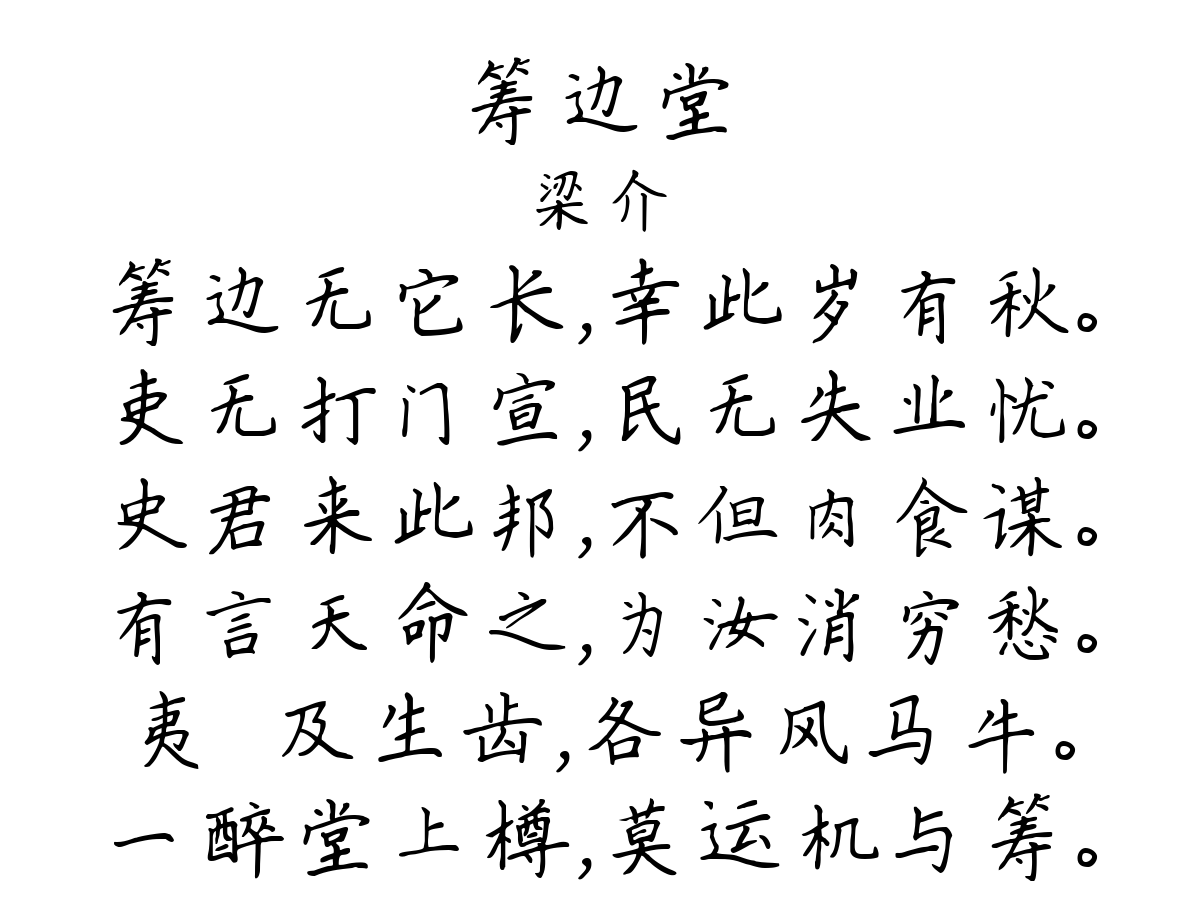 筹边堂
梁介
筹边无它长,幸此岁有秋。
吏无打门宣,民无失业忧。
史君来此邦,不但肉食谋。
有言天命之,为汝消穷愁。
夷 及生齿,各异风马牛。
一醉堂上樽,莫运机与筹。